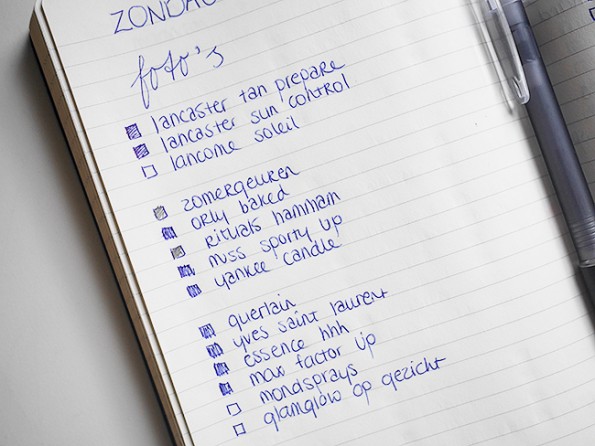 foto's
lancaster tan prepare
lancaster sun control
lancome soleil
zomergeuren
orly baked
rituals hammam
miss sporty up
yankee candle
guerlain
yves saint laurent
essence hhh
max factor up
mondsprays
glamglow op gezicht